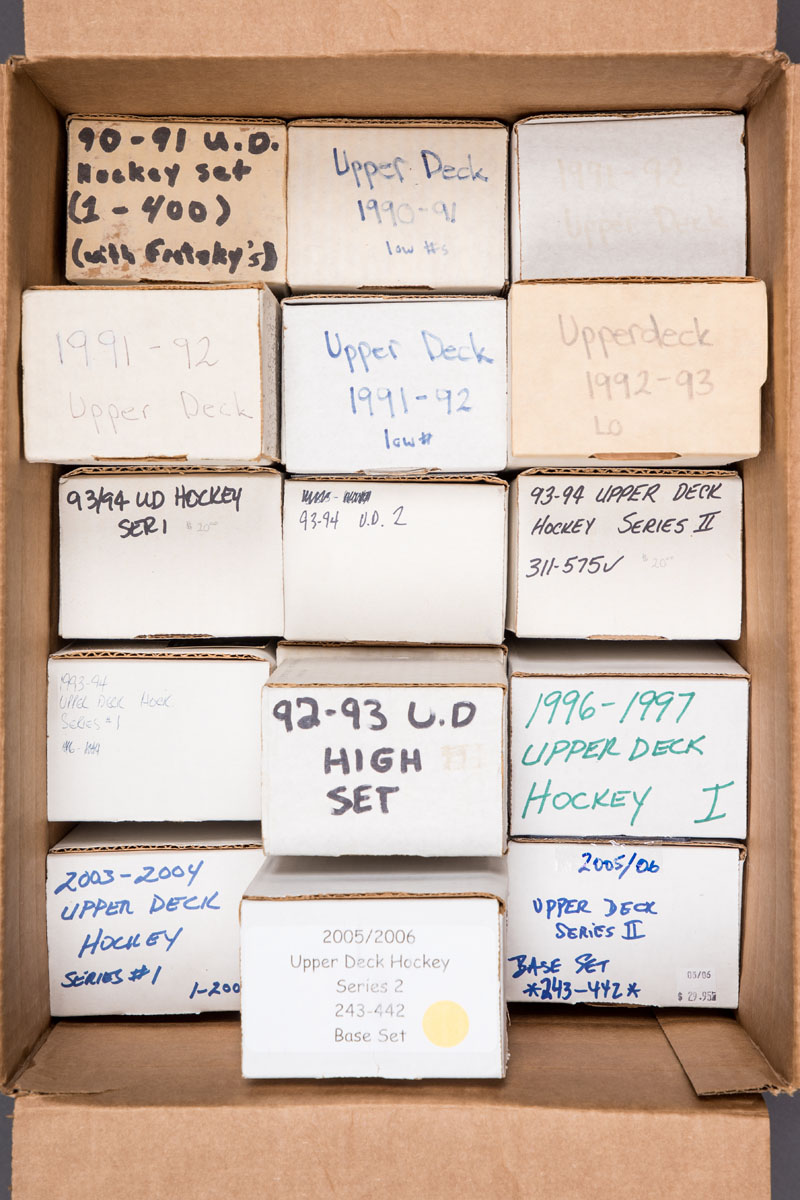 90-91 U.D.
Hockey set
(1-400)
(with Gretzky's)
Upper Deck
1990-91
low #s
1991-92
Upper Deck
1991-92
Upper Deck
Upper Deck
1991-92
low#
Upperdeck
1992-93
LO
93/94 UD HOCKEY
SER 1 $20
93-94 U.D. 2
93-94 UPPER DECK
HOCKEY SERIES II
311-575✓ $20
1993-94
UPPER DECK HOCK.
SERIES #1
92-93 U.D
HIGH
SET
1996-1997
UPPER DECK
HOCKEY I
2003-2004
UPPER DECK
HOCKEY
SERIES #1
1-200
2005/2006
Upper Deck Hockey
Series 2
243-442
Base Set
2005/06
UPPER DECK
SERIES II
BASE SET
*243-442*
05/06
$ 29.95